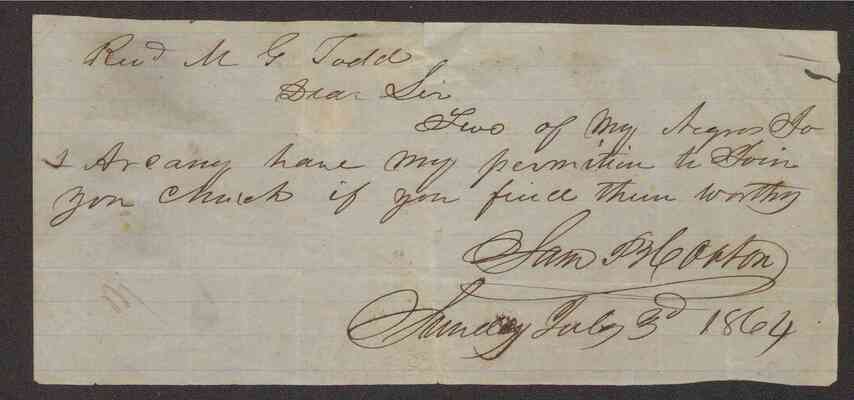 Revd M G Todd
Dear Sir
Two of my Negros Jo
& Arsany have my permition to Join
you Church if you find them worthy
Sam
Sunday July 3d 1864